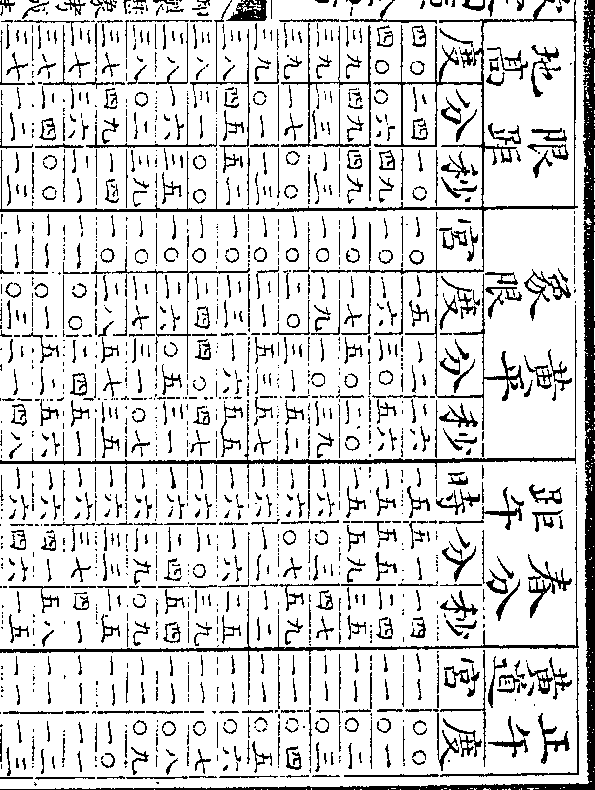 正午黃道 春分距午 黃平象限 限距地高
度分秒 宮度分秒 時分秒 宮度
四〇 二四 一〇 一〇 一五 一二 二六 一五 五一 一四 一一 〇〇
四〇 〇六 四九 一〇 一六 三〇 五六 一五 五五 二四 一一 〇一
三九 四九 四九 一〇 一七 五〇 二〇 一五 五九 三五 一一 〇二
三九 三三 一三 一〇 一九 一〇 三九 一六 〇三 四七 一一 〇三
三九 一七 〇〇 一〇 二〇 三一 五二 一六 〇七 五九 一一 〇四
三九 〇一 一三 一〇 二一 五三 五七 一六 一二 一二 一一 〇五
三八 四五 五二 一〇 二三 一六 五五 一六 一六 二五 一一 〇六
三八 三一 〇〇 一〇 二四 四〇 四七 一六 二〇 三九 一一 〇七
三八 一六 三五 一〇 二六 〇五 三一 一六 二四 五四 一一 〇八
三八 〇二 三九 一〇 二七 三一 〇七 一六 二九 〇九 一一 〇九
三七 四九 一四 一〇 二八 五七 三五 一六 三三 二五 一一 一〇
三七 三六 二一 一一 〇〇 二四 五一 一六 三七 四一 一一 一一
三七 二四 〇〇 一一 〇一 五二 五六 一六 四一 五八 一一 一二
三七 一二 一三 一一 〇三 二一 四八 一六 四六 一五 一一 一三